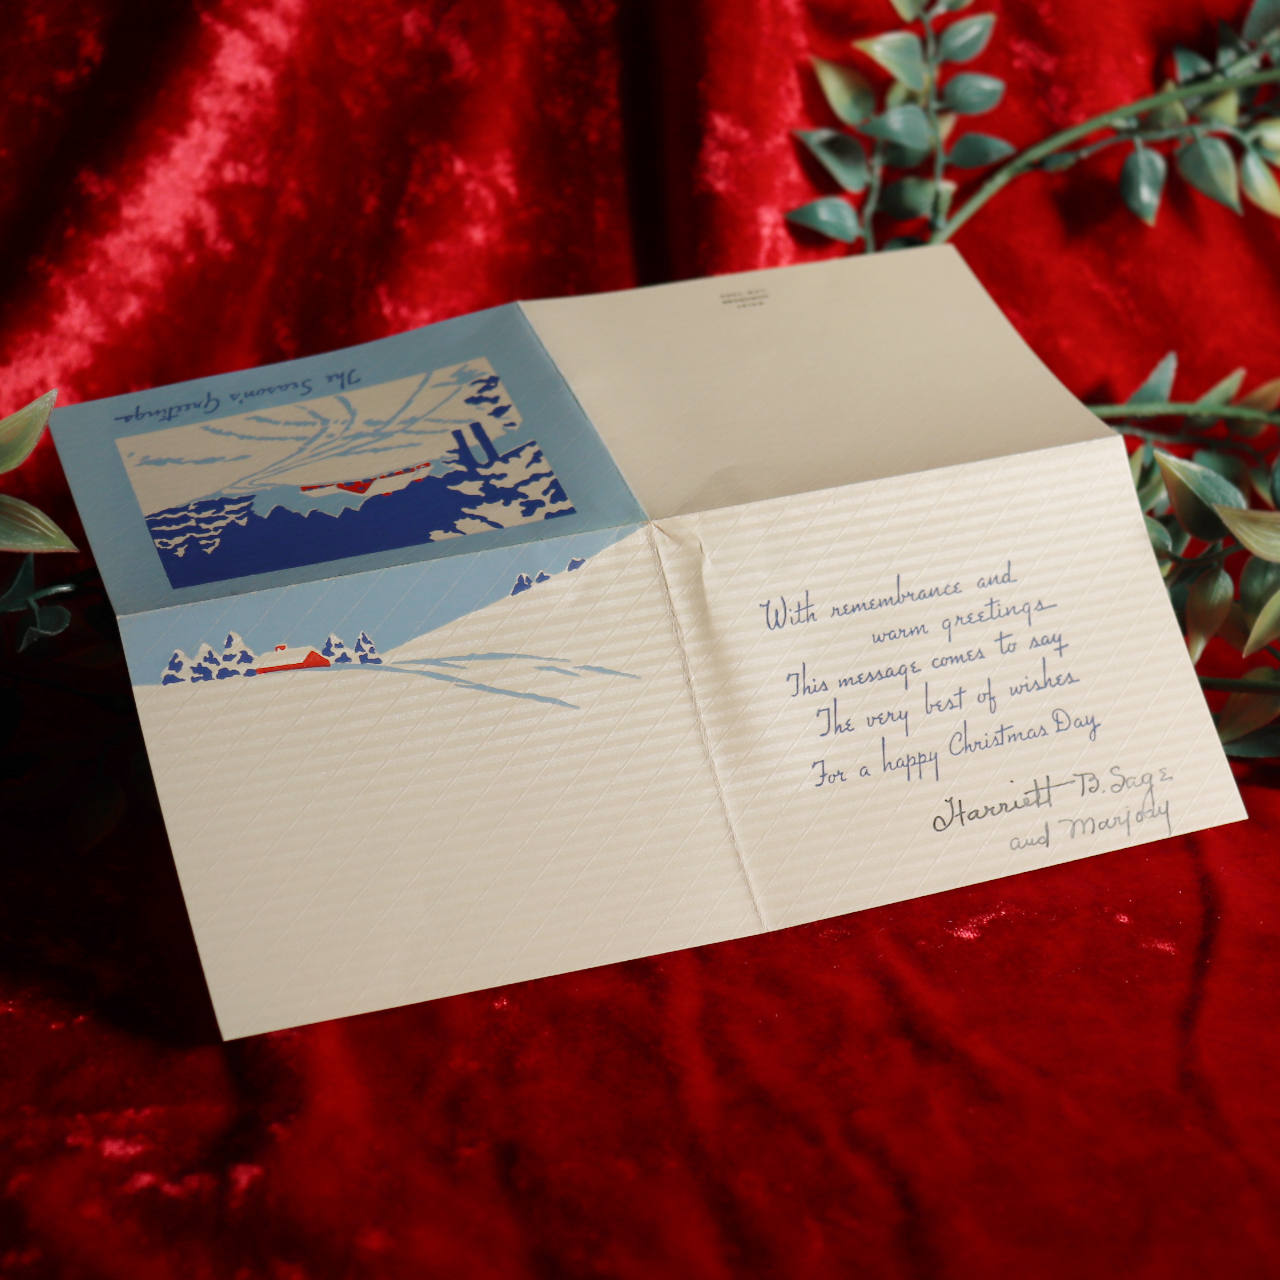 The Season's Greetings
With remembrance and
warm greetings
This message comes to say
The very best of wishes
For a happy Christmas Day
Harriett B. Sage
and Marjory